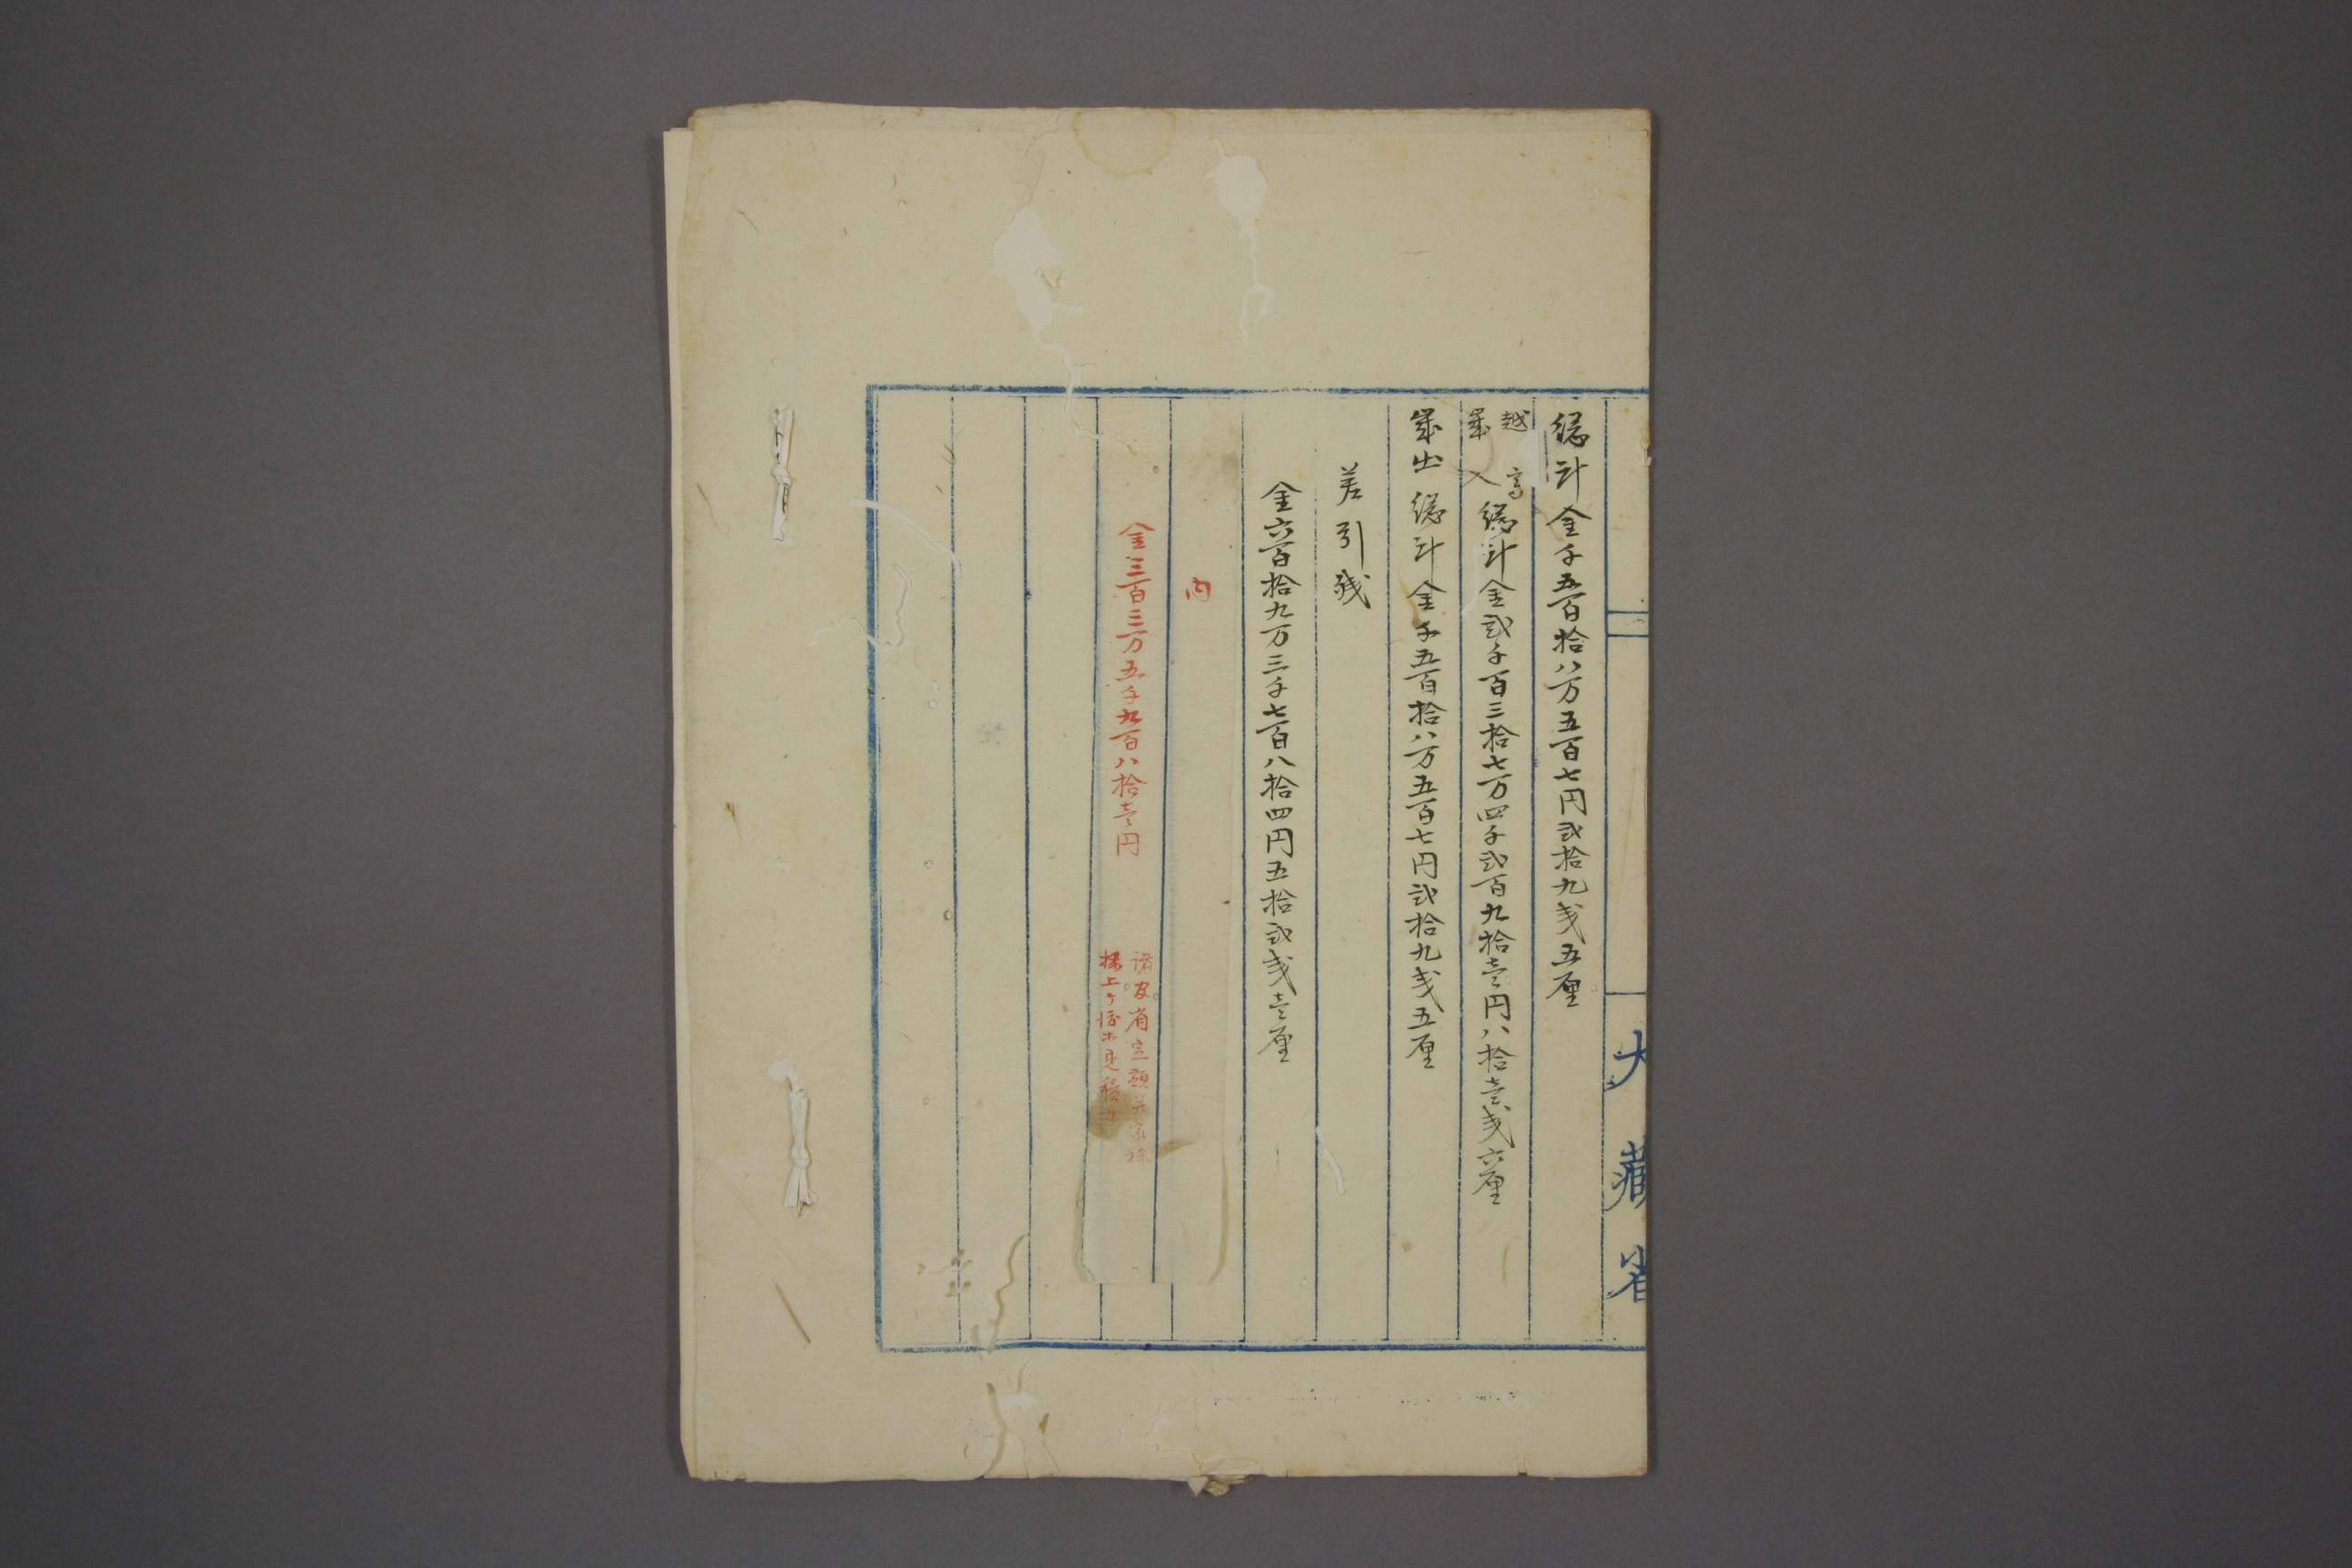 大藏省
緫計金千五百拾八万五百七円弐拾九戋五厘
越高
歳入
緫計金弐千百三拾七万四千弐百九拾壱円八拾壱戋六厘
歳出緫計金千五百拾八万五百七円弐拾九戋五厘
差引残
金六百拾九万三千七百八拾四円五拾弐戋壱厘
内
金三百三万五千九百八拾壱円
省定額并家禄
上ケ渡ホ見積